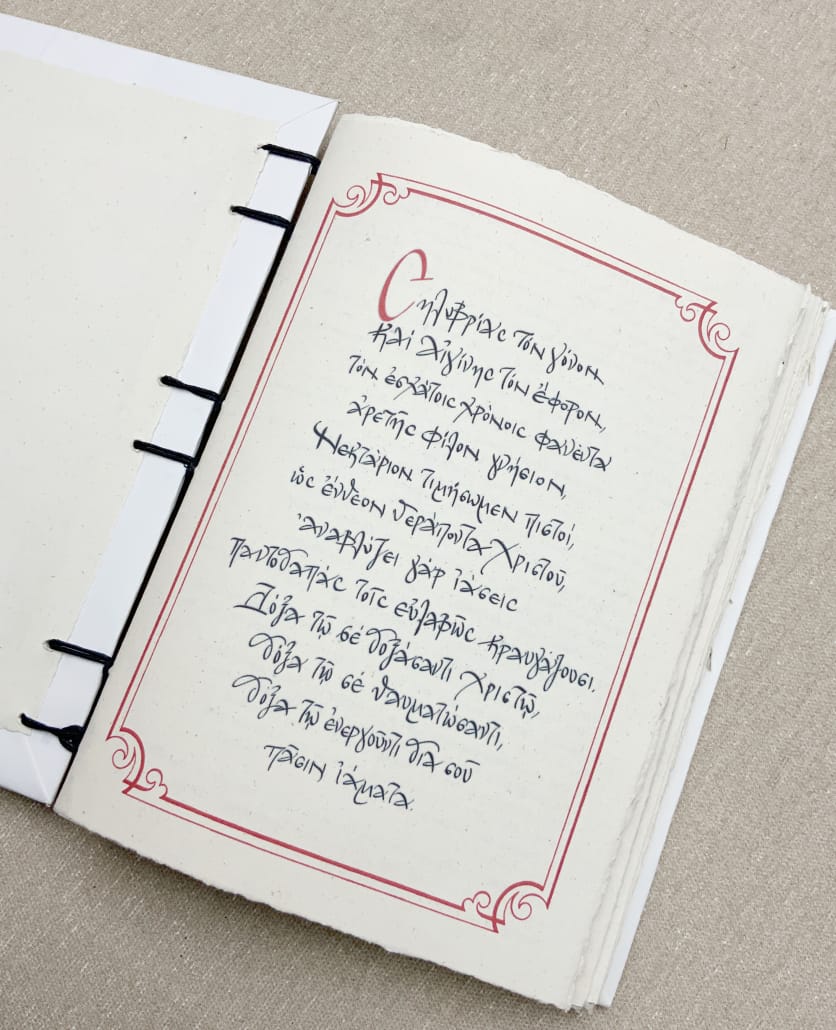 Σηλυβρίας τόν γόνον
καί Αἰγίνης τόν ἔφορον,
τόν ἐσχάτοις χρόνοις φανέντα
ἀρετῆς φίλον γνήσιον,
Νεκτάριον τιμήσωμεν πιστοί,
ὡς ἔνθεον θεράποντα Χριστοῦ,
ἀναβλύζει γάρ ἰάσεις
παντοδαπάς τοῖς εὐλαβῶς κραυγάζουσι.
Δόξα τῷ σέ δοξάσαντι Χριστῷ,
δόξα τῷ σέ θαυματώσαντι,
δόξα τῷ ἐνεργοῦντι διά σοῦ
πᾶσιν ἰάματα.